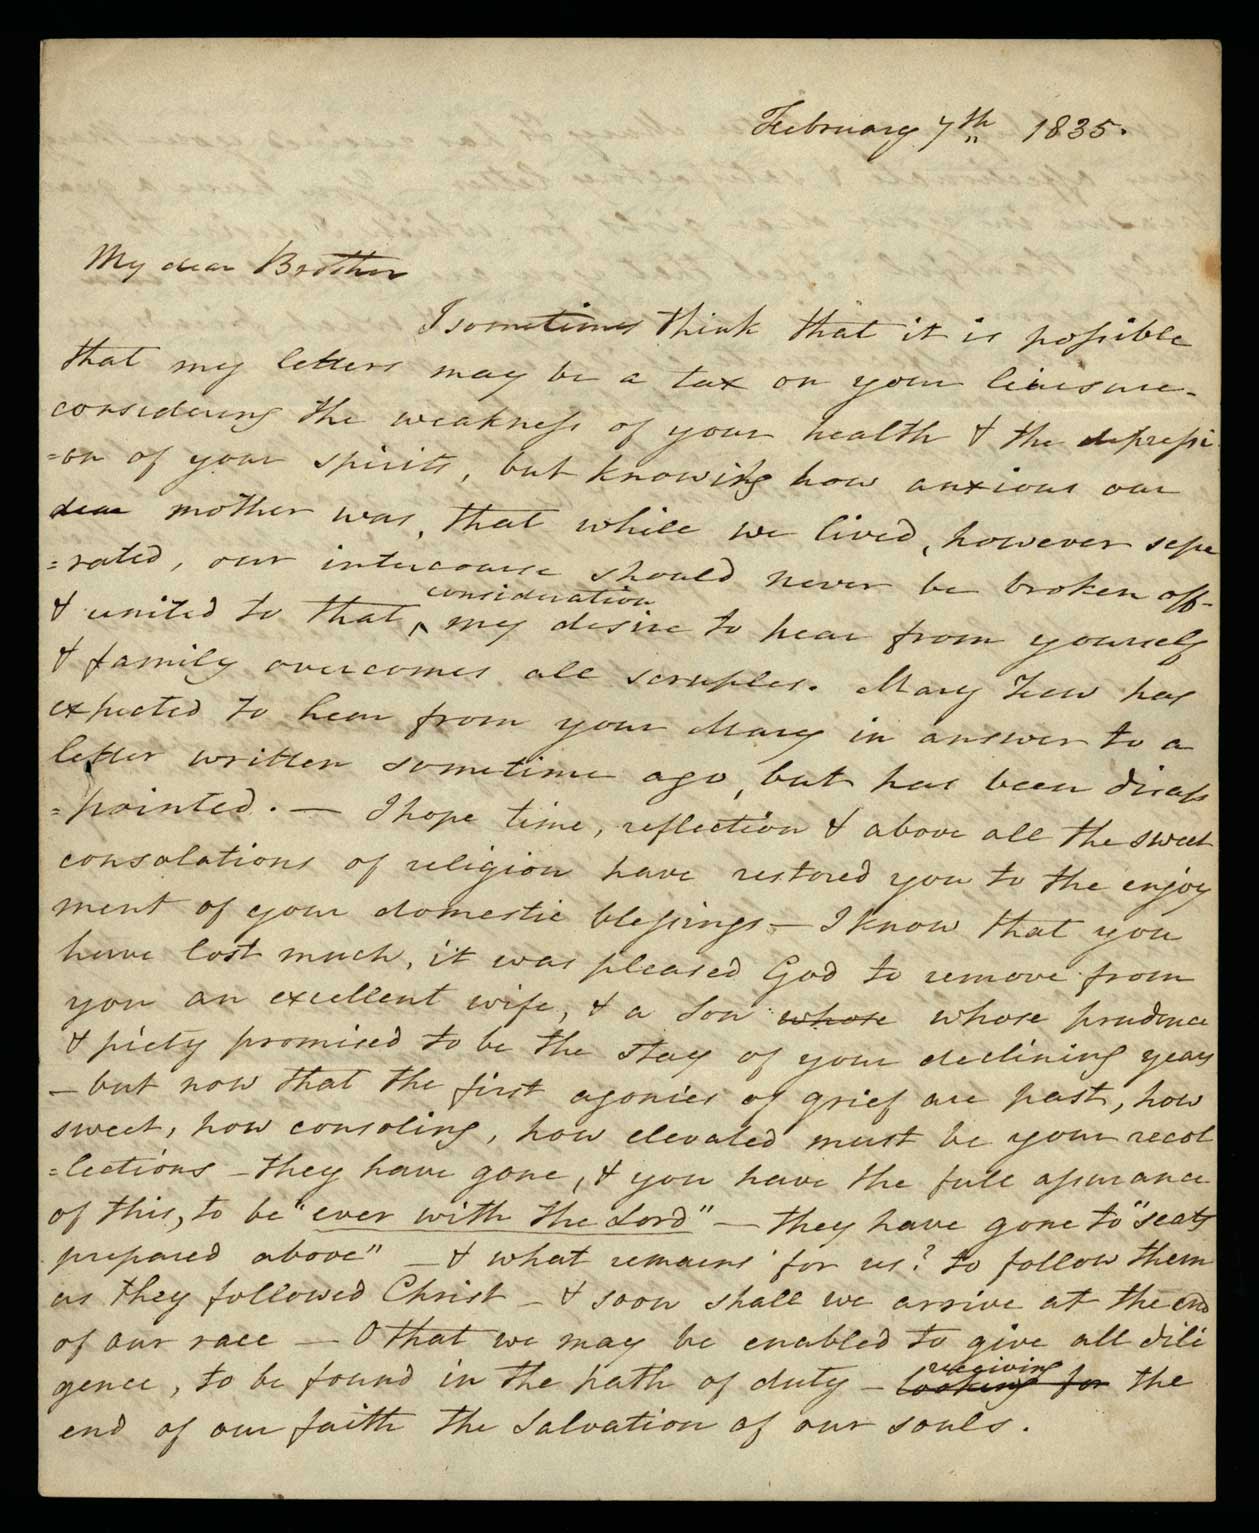 February 7th 1835.
My dear Brother
I sometimes think that it is possible
that my letters may be a tax on your liesure -
considering the weakness of your health & the depressi
=on of your spirits, but knowing how anxious our
dear mother was, that while we lived, however sepe
=rated, our intercourse should never be broken off -
consideration
& united to that ^ my desire to hear from yourself
& family overcomes all scruples. Mary Few has
expected to hear from your Mary in answer to a
letter written sometime ago, but has been disap
=pointed. — I hope time, reflection & above all the sweet
consolations of religion have restored you to the enjoy
ment of your domestic blessings — I know that you
have lost much, it was pleased God to remove from
you an excellent wife, & a Son whose whose prudence
& piety promised to be the stay of your declining years
— but now that the first agonies of grief are past, how
sweet, how consoling, how elevated must be your recol
=lections — they have gone, & you have the full assurance
of this, to be "ever with the Lord" — they have gone to "seats
prepared above" — & what remains for us? to follow them
as they followed Christ — & soon shall we arrive at the end
of our race — O that we may be enabled to give all dili
receiving
gence, to be found in the path of duty — looking for the
end of our faith the Salvation of our souls.